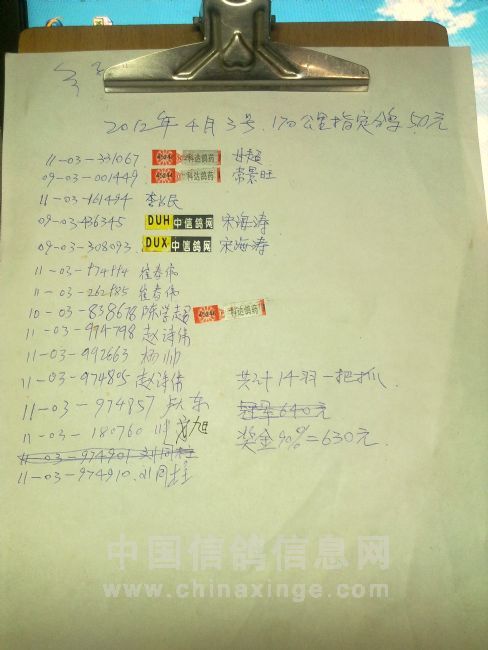 2012年4月3号.170公里指定鸽50元
11-03-331067 科达鸽药
09-03-001449 科达鸽药 常景旺
11-03-161494 李长民
09-03-436345 DUH 中信鸽网 宋海涛
09-03-308093 DUX 中信鸽网 宋海涛
11-03-974114 崔春伟
11-03-262985 崔春伟
10-03-838678 陈学超 科达鸽药
11-03-974798 赵诗倩
11-03-992663 杨帅
11-03-974805 赵诗倩 共计14羽一把抓.
11-03-974957 东 冠军640元
11-03-180760 旭 奖金90%=630元.
11-03-974901 刘同柱
11-03-974910.刘同柱
中国信鸽信息网
www.chinaxinge.com